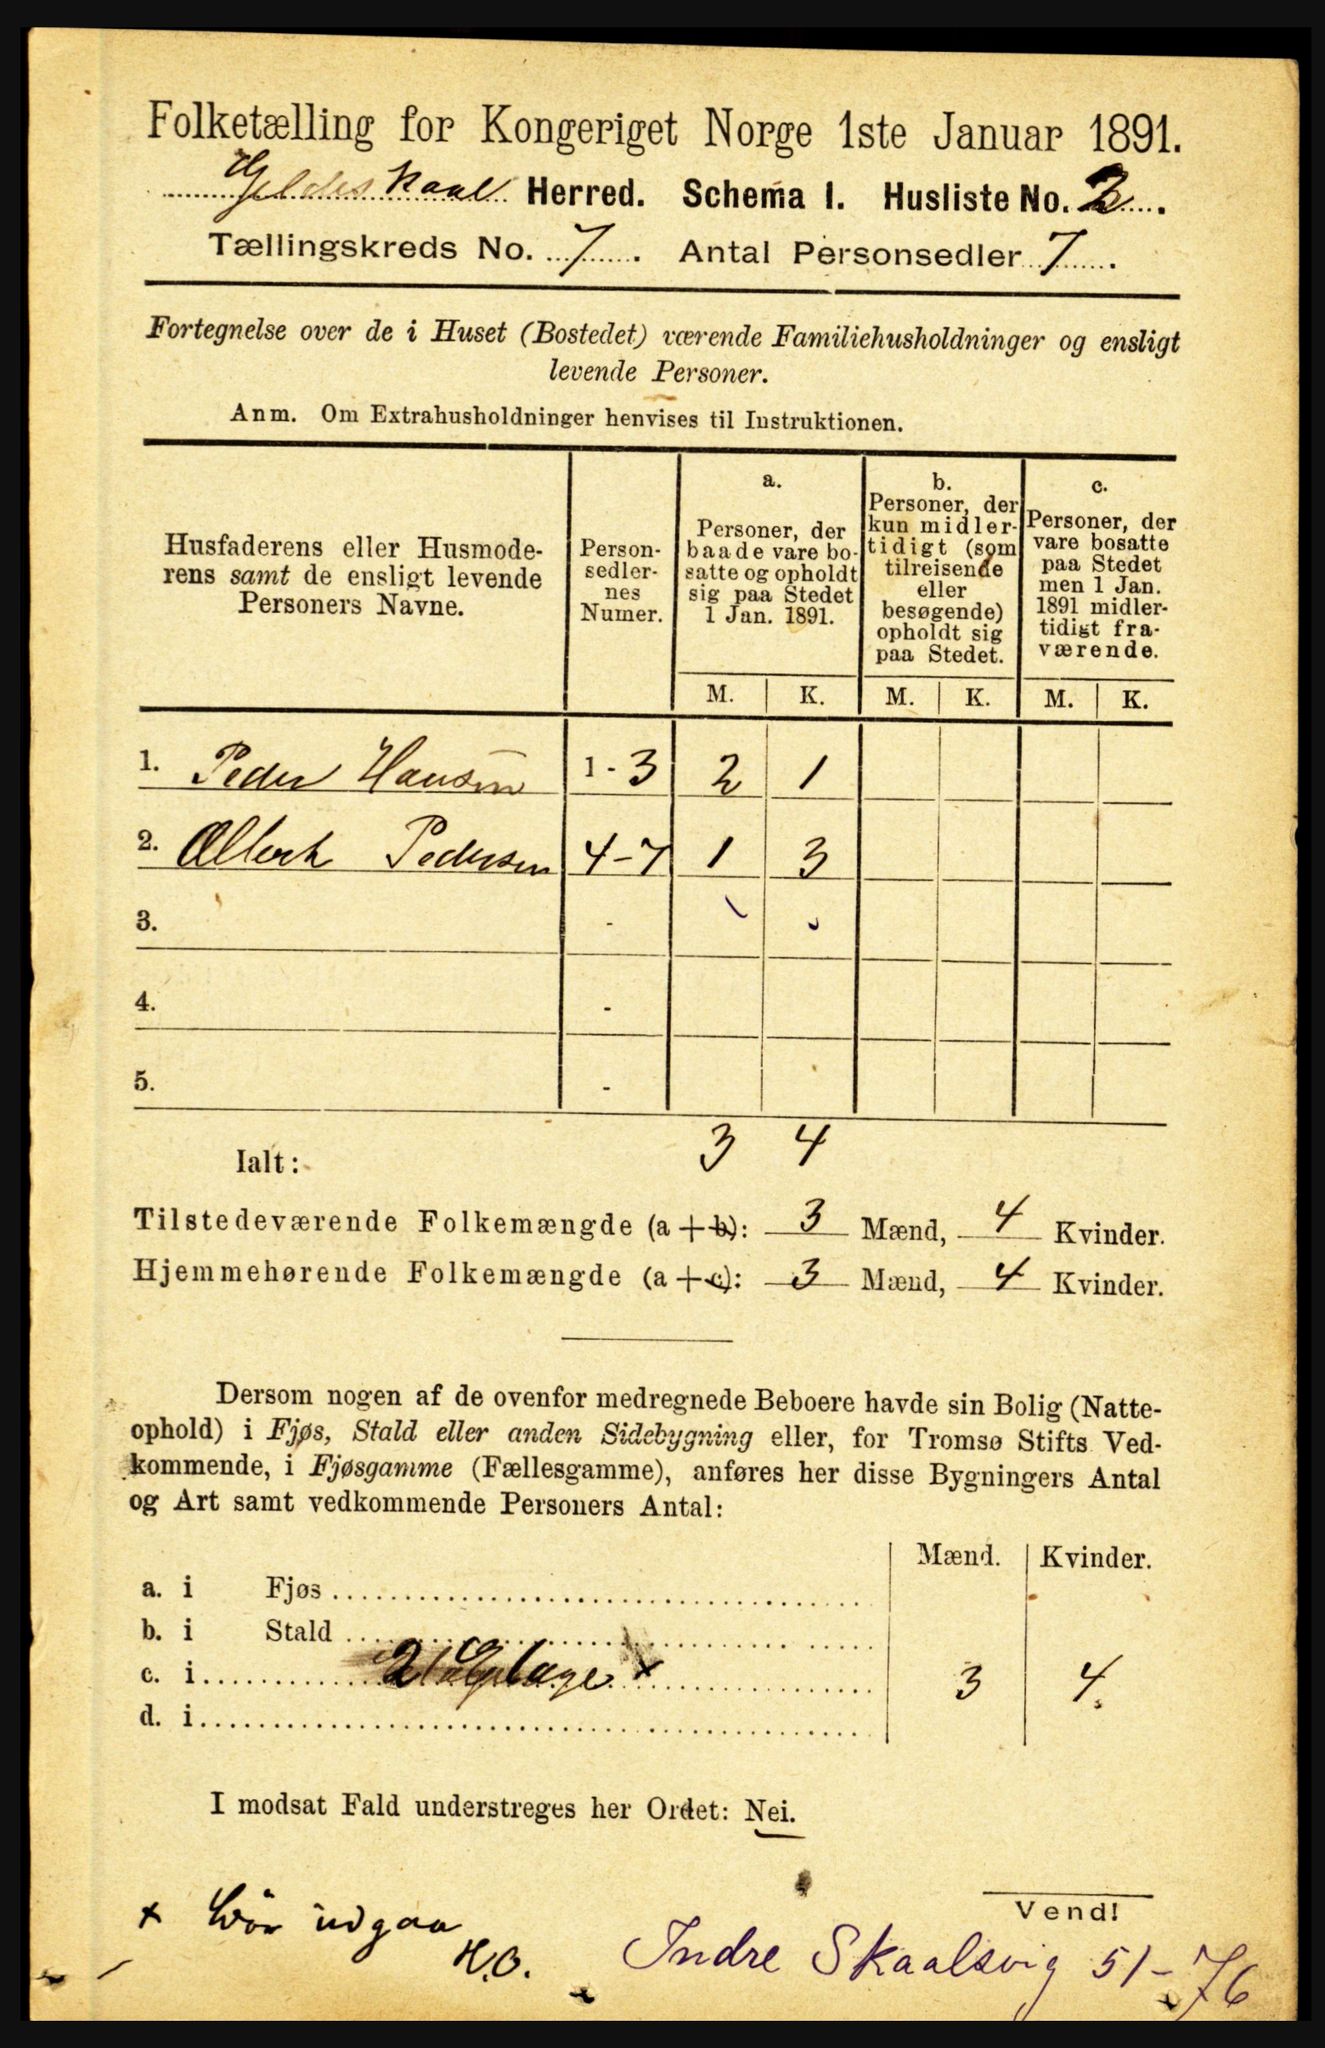 Folketælling for Kongeriget Norge 1ste Januar 1891.
Gildeskaal Herred. Schema I. Husliste No. 2.
Tællingskreds No. 7. Antal Personsedler 7.
Fortegnelse over de i Huset (Bostedet) værende Familiehusholdninger og ensligt
levende Personer.
Anm. Om Extrahusholdninger henvises til Instruktionen.
Husfaderens eller Husmode-
rens samt de ensligt levende
Personers Navne.
Person-
sedler-
nes
Numer.
a.
Personer, der
baade vare bo-
satte og opholdt
sig paa Stedet
1 Jan. 1891.
b.
Personer, der
kun midler-
tidigt (som
tilreisende
eller
besøgende)
opholdt sig
paa Stedet.
c.
Personer, der
vare bosatte
paa Stedet
men 1 Jan.
1891 midler-
tidigt fra-
værende.
M. K. M. K. M. K.
1. Peder Hansen 1 - 3 2 1
2. Albert Pedersen 4 - 7 1 3
3. -
4. -
5. -
Ialt: 3 4
Tilstedeværende Folkemængde (a + b): 3 Mænd, 4 Kvinder.
Hjemmehørende Folkemængde (a + c): 3 Mænd, 4 Kvinder.
Dersom nogen af de ovenfor medregnede Beboere havde sin Bolig (Natte-
ophold) i Fjøs, Stald eller anden Sidebygning eller, for Tromsø Stifts Ved-
kommende, i Fjøsgamme (Fællesgamme), anføres her disse Bygningers Antal
og Art samt vedkommende Personers Antal:
Mænd. Kvinder.
a. i Fjøs
b. i Stald
c. i 3 4.
d. i
I modsat Fald understreges her Ordet: Nei.
Vend!
x bør udgaa
H.O.
Indre Skaalsvig 51-76